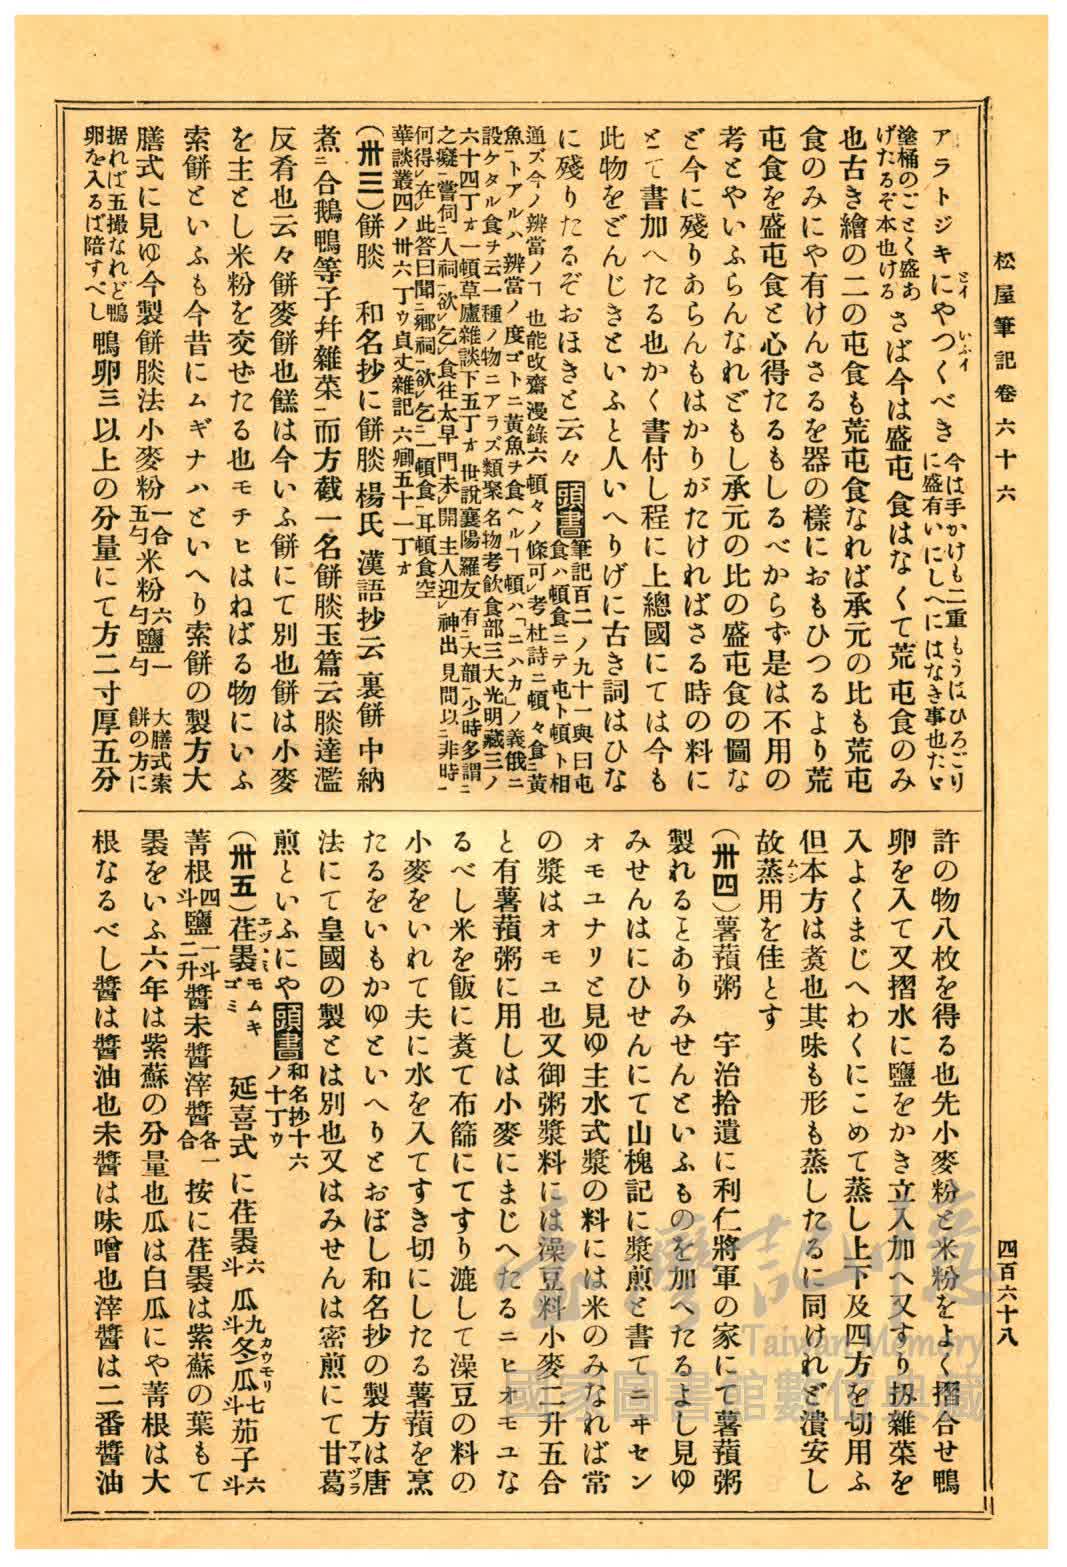 松屋筆記卷六十六
四百六十八
アラトジキにやつくべき 今は手かけも二重もうはひろごり
に盛有いにしへにはなき事也たゞ
塗桶のごとく盛あ
げたるぞ本也ける さば今は盛屯食はなくて荒屯食のみ
也古き繪の二の屯食も荒屯食なれば承元の比も荒屯
食のみにや有けんさるを器の樣におもひつるより荒
屯食を盛屯食と心得たるもしるべからず是は不用の
考とやいふらんなれどもし承元の比の盛屯食の圖な
ど今に殘りあらんもはかりがたければさる時の料に
とて書加へたる也かく書付し程に上總國にては今も
此物をどんじきといふと人いへりげに古き詞はひな
に殘りたるぞおほきと云々 頭書 筆記百二ノ九十一與曰屯
食ハ頓食ニテ屯ト頓ト相
通ズ今ノ辨當ノヿ也能改齋漫錄六頓々ノ條可考杜詩ニ頓々食黃
魚トアルハ辨當ノ度ゴトニ黃魚ヲ食ヘルヿ頓ハ「ニハカ」ノ義俄ニ
設ケタル食ヲ云一種ノ物ニアラズ類聚名物考飲食部三大光明藏三ノ
六十四丁ォ一頓草廬雜談下五丁ォ世說襄陽羅友有大韻少時多謂
之癡嘗伺人祠欲乞食往太早門未開主人迎神出見問以非時
何得在此答曰聞鄉祠欲乞一頓食耳頓食空
華談叢四ノ卅六丁ゥ貞丈雜記六卿五十一丁ォ
（卅三）餅腅 和名抄に餅腅楊氏漢語抄云裹餅中納
煮ニ合鵝鴨等子幷雜菜而方截一名餅腅玉篇云腅達濫
反肴也云々餅麥餅也餻は今いふ餅にて別也餅は小麥
を主とし米粉を交ぜたる也モチヒはねばる物にいふ
索餅といふも今昔にムギナハといへり索餅の製方大
膳式に見ゆ今製餅腅法小麥粉一合
五勺米粉六
勺鹽一
勺 大膳式索
餅の方に
据れば五撮なれど鴨
卵を入るば陪すべし 鴨卵三以上の分量にて方二寸厚五分
許の物八枚を得る也先小麥粉と米粉をよく摺合せ鴨
卵を入て又摺水に鹽をかき立入加へ又すり扨雜菜を
入よくまじへわくにこめて蒸し上下及四方を切用ふ
但本方は煮也其味も形も蒸したるに同けれど潰安し
故蒸用を佳とす
（卅四）薯蕷粥 宇治拾遺に利仁將軍の家にて薯蕷粥
製れるとありみせんといふものを加へたるよし見ゆ
みせんはにひせんにて山槐記に漿煎と書てニヰセン
オモユナリと見ゆ主水式漿の料には米のみなれば常
の漿はオモユ也又御粥漿料には澡豆料小麥二升五合
と有薯蕷粥に用しは小麥にまじへたるニヒオモユな
るべし米を飯に煮て布篩にてすり漉して澡豆の料の
小麥をいれて夫に水を入てすき切にしたる薯蕷を烹
たるをいもかゆといへりとおぼし和名抄の製方は唐
法にて皇國の製とは別也又はみせんは密煎にて甘葛
煎といふにや 頭書 和名抄十六
ノ十丁ゥ
（卅五）荏裹 モムキ
ゴミ 延喜式に荏裹六
斗瓜九
斗冬瓜七
斗茄子六
斗
菁根四
斗鹽一斗
二升醬未醬滓醬各一
合 按に荏裹は紫蘇の葉もて
裹をいふ六年は紫蘇の分量也瓜は白瓜にや菁根は大
根なるべし醬は醬油也未醬は味噌也滓醬は二番醬油
臺灣記憶
Taiwan Memory
國家圖書館數位典藏